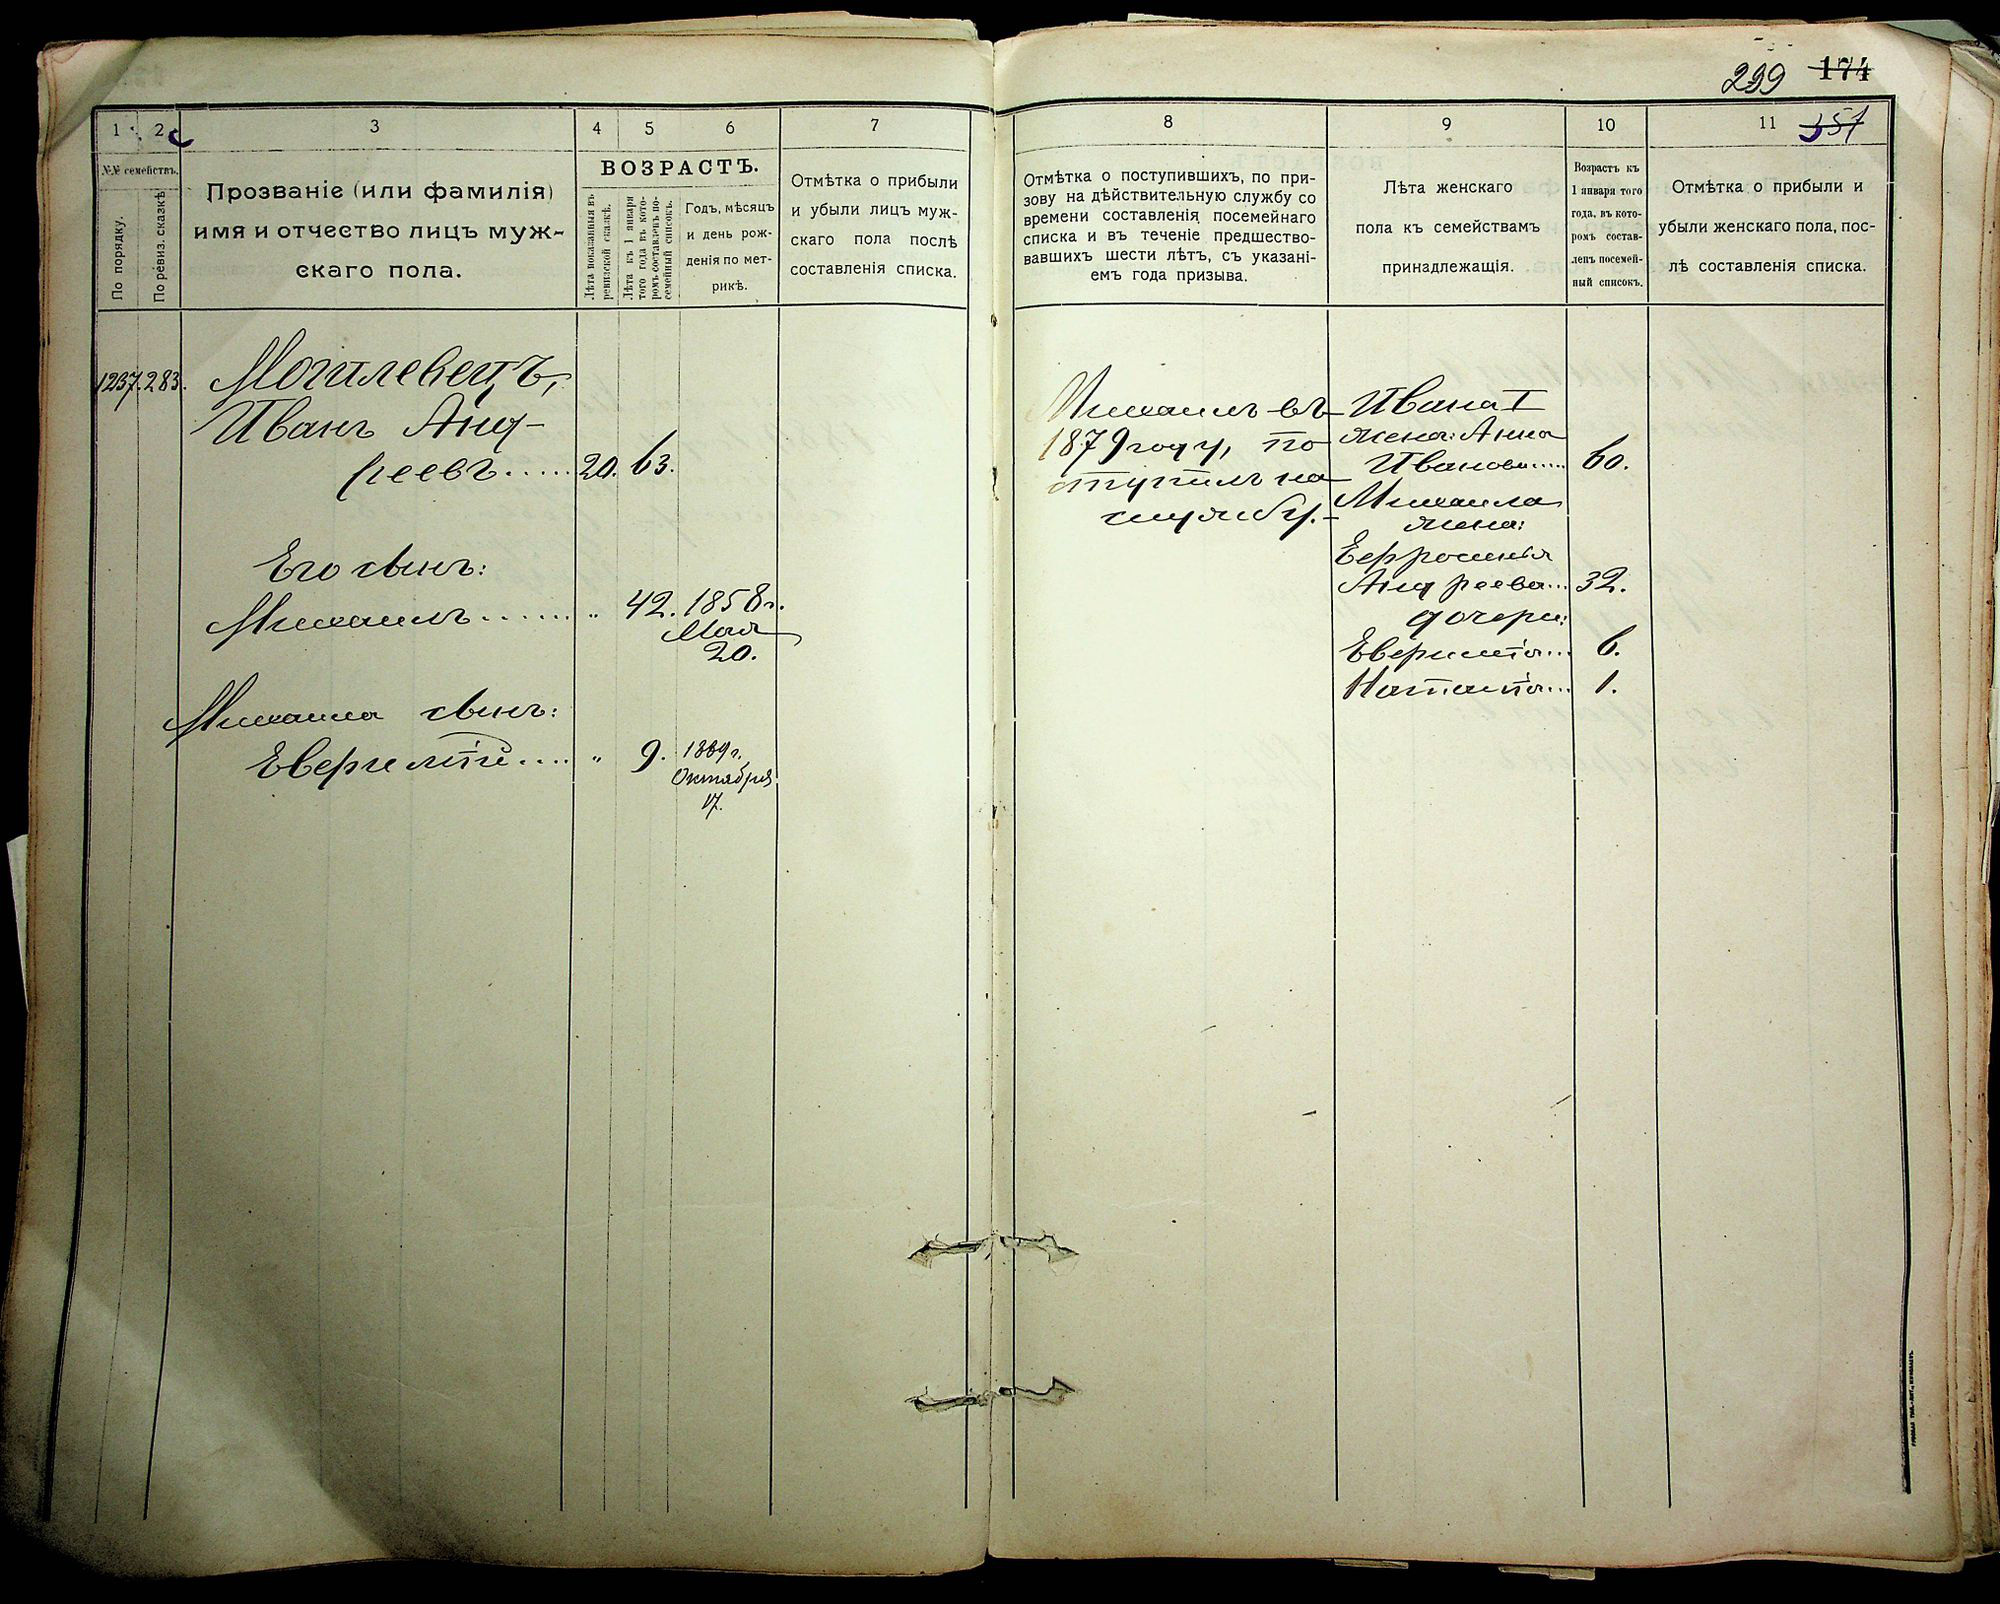 299 174
1 2 3 4 5 6 7
№№ семействъ.
По порядку.
По ревиз. сказкѣ
Прозваніе (или фамилія)
имя и отчество лицъ муж-
скаго пола.
ВОЗРАСТЪ.
Лѣта показанныя въ
ревизской сказкѣ.
Лѣта къ 1 января
того года въ кото-
ромъ составленъ по-
семейный списокъ.
Годъ, мѣсяцъ
и день рож-
денія по мет-
рикѣ.
Отмѣтка о прибыли
и убыли лицъ муж-
скаго пола послѣ
составленія списка.
1237. 283. Могилевецъ,
Иванъ Анд-
реевъ..... 20. 63.
Его сынъ:
Михаилъ....... „ 42. 1858 г.
Мая
20.
Михаила сынъ:
Евергилтій..... „ 9. 1889 г.
Октября
17.
8 9 10 11 357
Отмѣтка о поступившихъ, по при-
зову на дѣйствительную службу со
времени составленія посемейнаго
списка и въ теченіе предшество-
вавшихъ шести лѣтъ, съ указані-
емъ года призыва.
Лѣта женскаго
пола къ семействамъ
принадлежащія.
Возрастъ къ
1 января того
года, въ кото-
ромъ состав-
ленъ посемей-
ный списокъ.
Отмѣтка о прибыли и
убыли женскаго пола, пос-
лѣ составленія списка.
Михаилъ въ
1879 году, по
ступилъ на
службу.-
Ивана I
жена: Анна
Иванова..... 60.
Михаила
жена:
Ефросинья
Андреева... 32.
дочери:
6.
1.